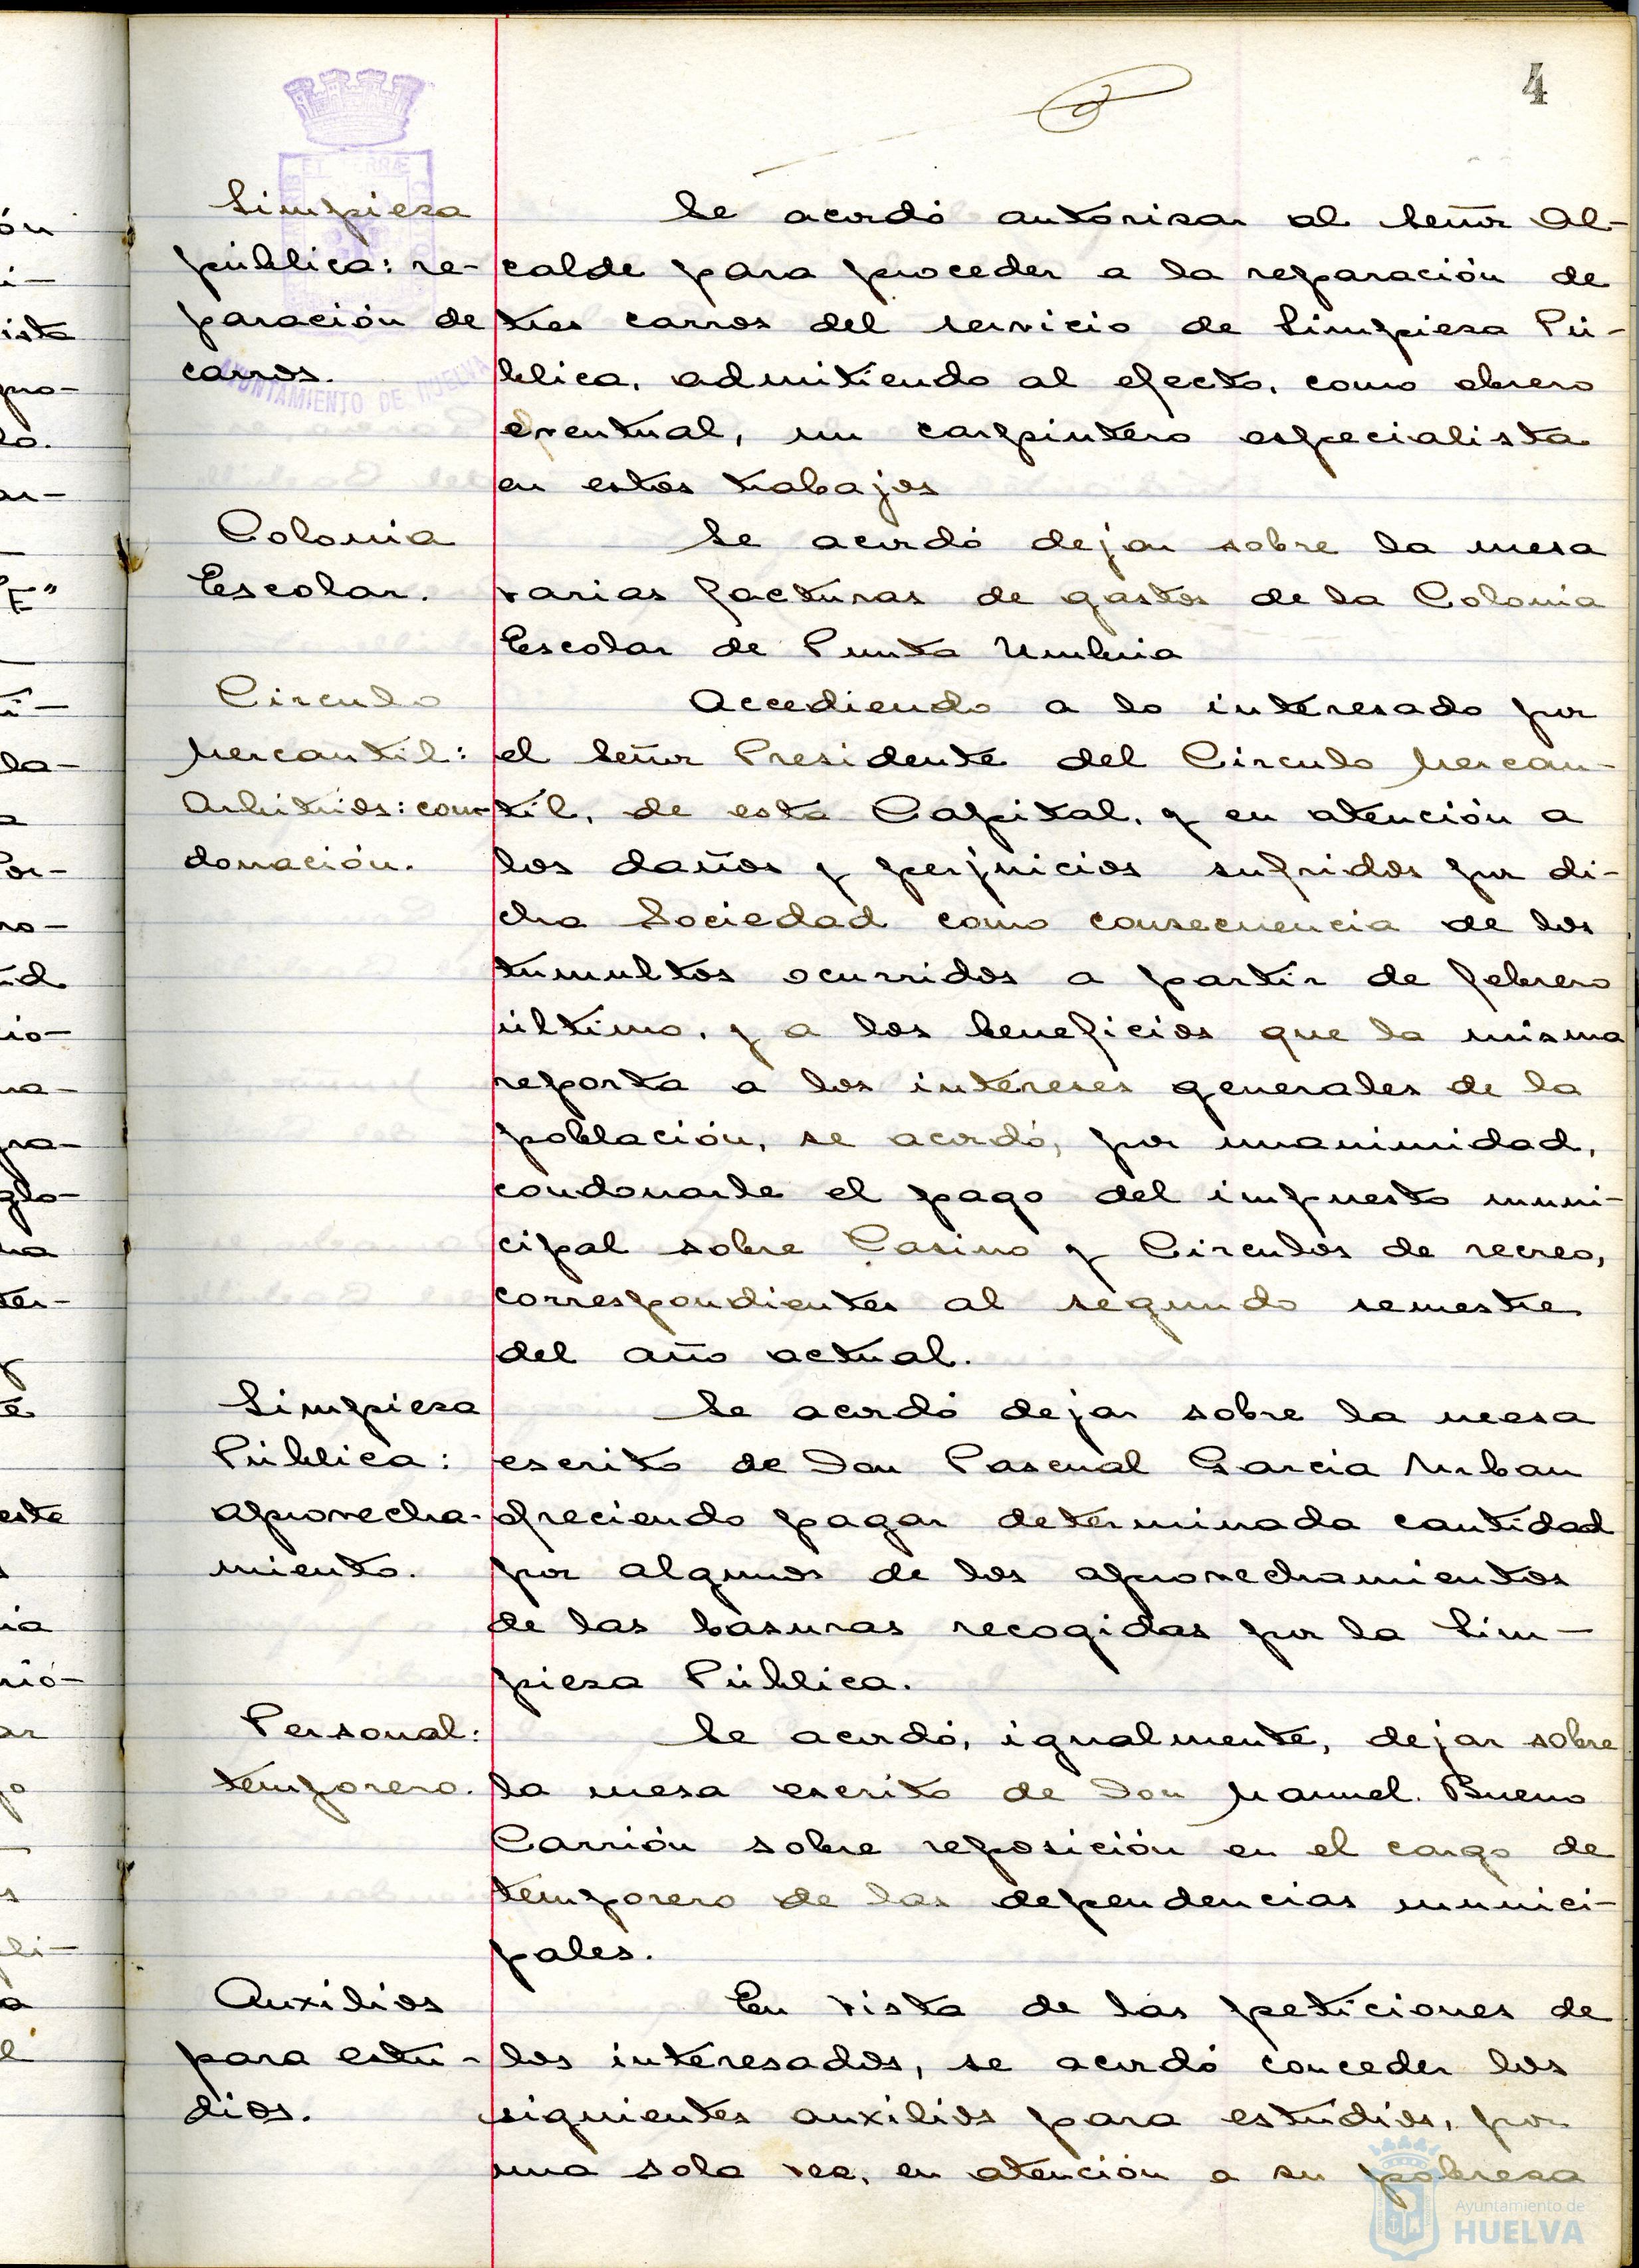 4
Limpieza
pública: re-
paración de
carros.
AYUNTAMIENTO DE HUELVA
Se acordó autorizar al Señor Al-
calde para proceder a la reparación de
tres carros del servicio de Limpieza Pú-
blica, admitiendo al efecto, como obrero
eventual, un carpintero especialista
en estos trabajos
Colonia
Escolar.
Se acordó dejar sobre la mesa
varias facturas de gastos de la Colonia
Escolar de Punta Umbria
Circulo
Mercantil:
Arbitrios: con-
donación.
Accediendo a lo interesado por
el Señor Presidente del Circulo Mercan-
til, de esta Capital, y en atención a
los daños y perjuicios sufridos por di-
cha Sociedad como consecuencia de los
tumultos ocurridos a partir de febrero
último, y a los beneficios que la misma
reporta a los intereses generales de la
población, se acordó, por unanimidad,
condonarle el pago del impuesto muni-
cipal sobre Casino y Circulos de recreo,
correspondientes al segundo semestre
del año actual.
Limpieza
Pública:
aprovecha-
miento.
Se acordó dejar sobre la mesa
escrito de Don Pascual Garcia Urban
ofreciendo pagar determinada cantidad
por algunos de los aprovechamientos
de las basuras recogidas por la Lim-
pieza Pública.
Personal:
temporero.
Se acordó, igualmente, dejar sobre
la mesa escrito de Don Manuel Bueno
Carrión sobre reposición en el cargo de
temporero de las dependencias munici-
pales.
Auxilios
para estu-
dios.
En vista de las peticiones de
los interesados, se acordó conceder los
siguientes auxilios para estudios, por
una sola vez, en atención a su pobreza
Ayuntamiento de
HUELVA